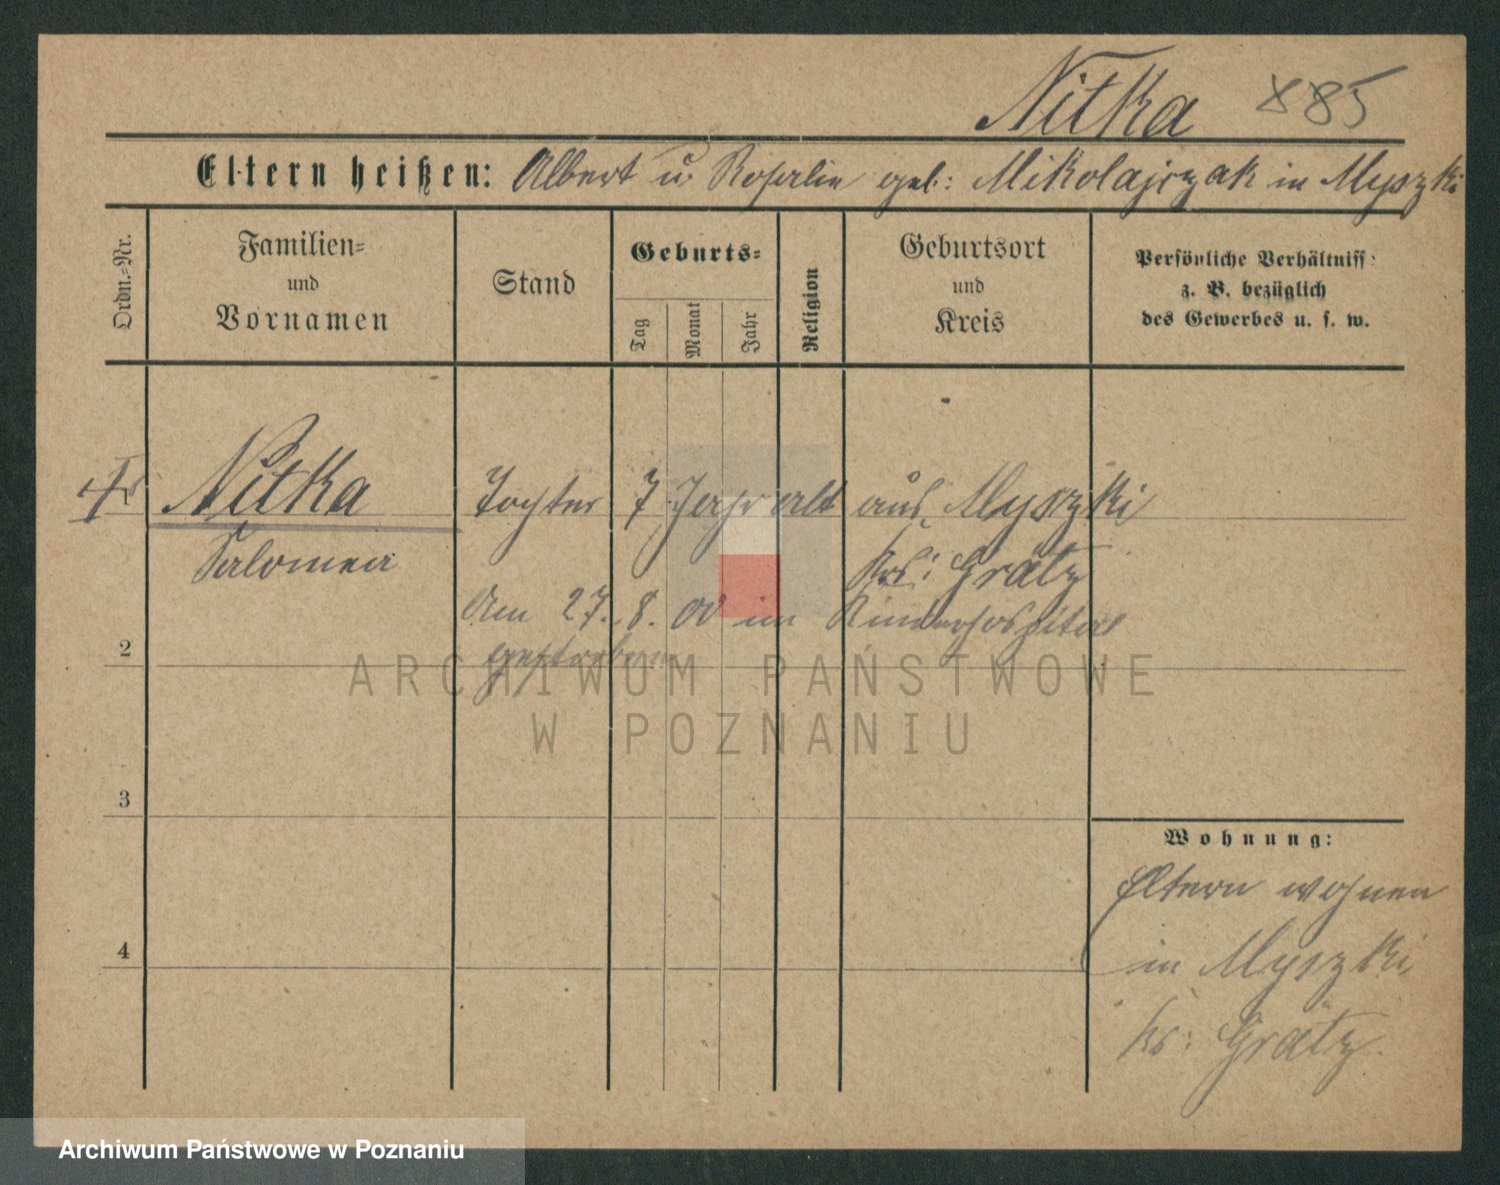 Nitka 885
Eltern heißen: Albert u. Rosalie geb: Mikolajczak in Myszki
Ordn.-Nr.
Familien-
und
Vornamen
Stand
Geburts-
Tag
Monat
Jahr
Religion
Geburtsort
und
Kreis
Persönliche Verhältniss:
z. B. bezüglich
des Gewerbes u. s. w.
1 Nitka Tochter 7 Jahr alt aus Myszki
Salomea Krs: Grätz
Am 27. 8. 00 im Kinderhospital
2 gestorben
ARCHIWUM PAŃSTWOWE
W POZNANIU
3
Wohnung:
Eltern wohnen
4 in Myszki
Krs: Grätz.
Archiwum Państwowe w Poznaniu